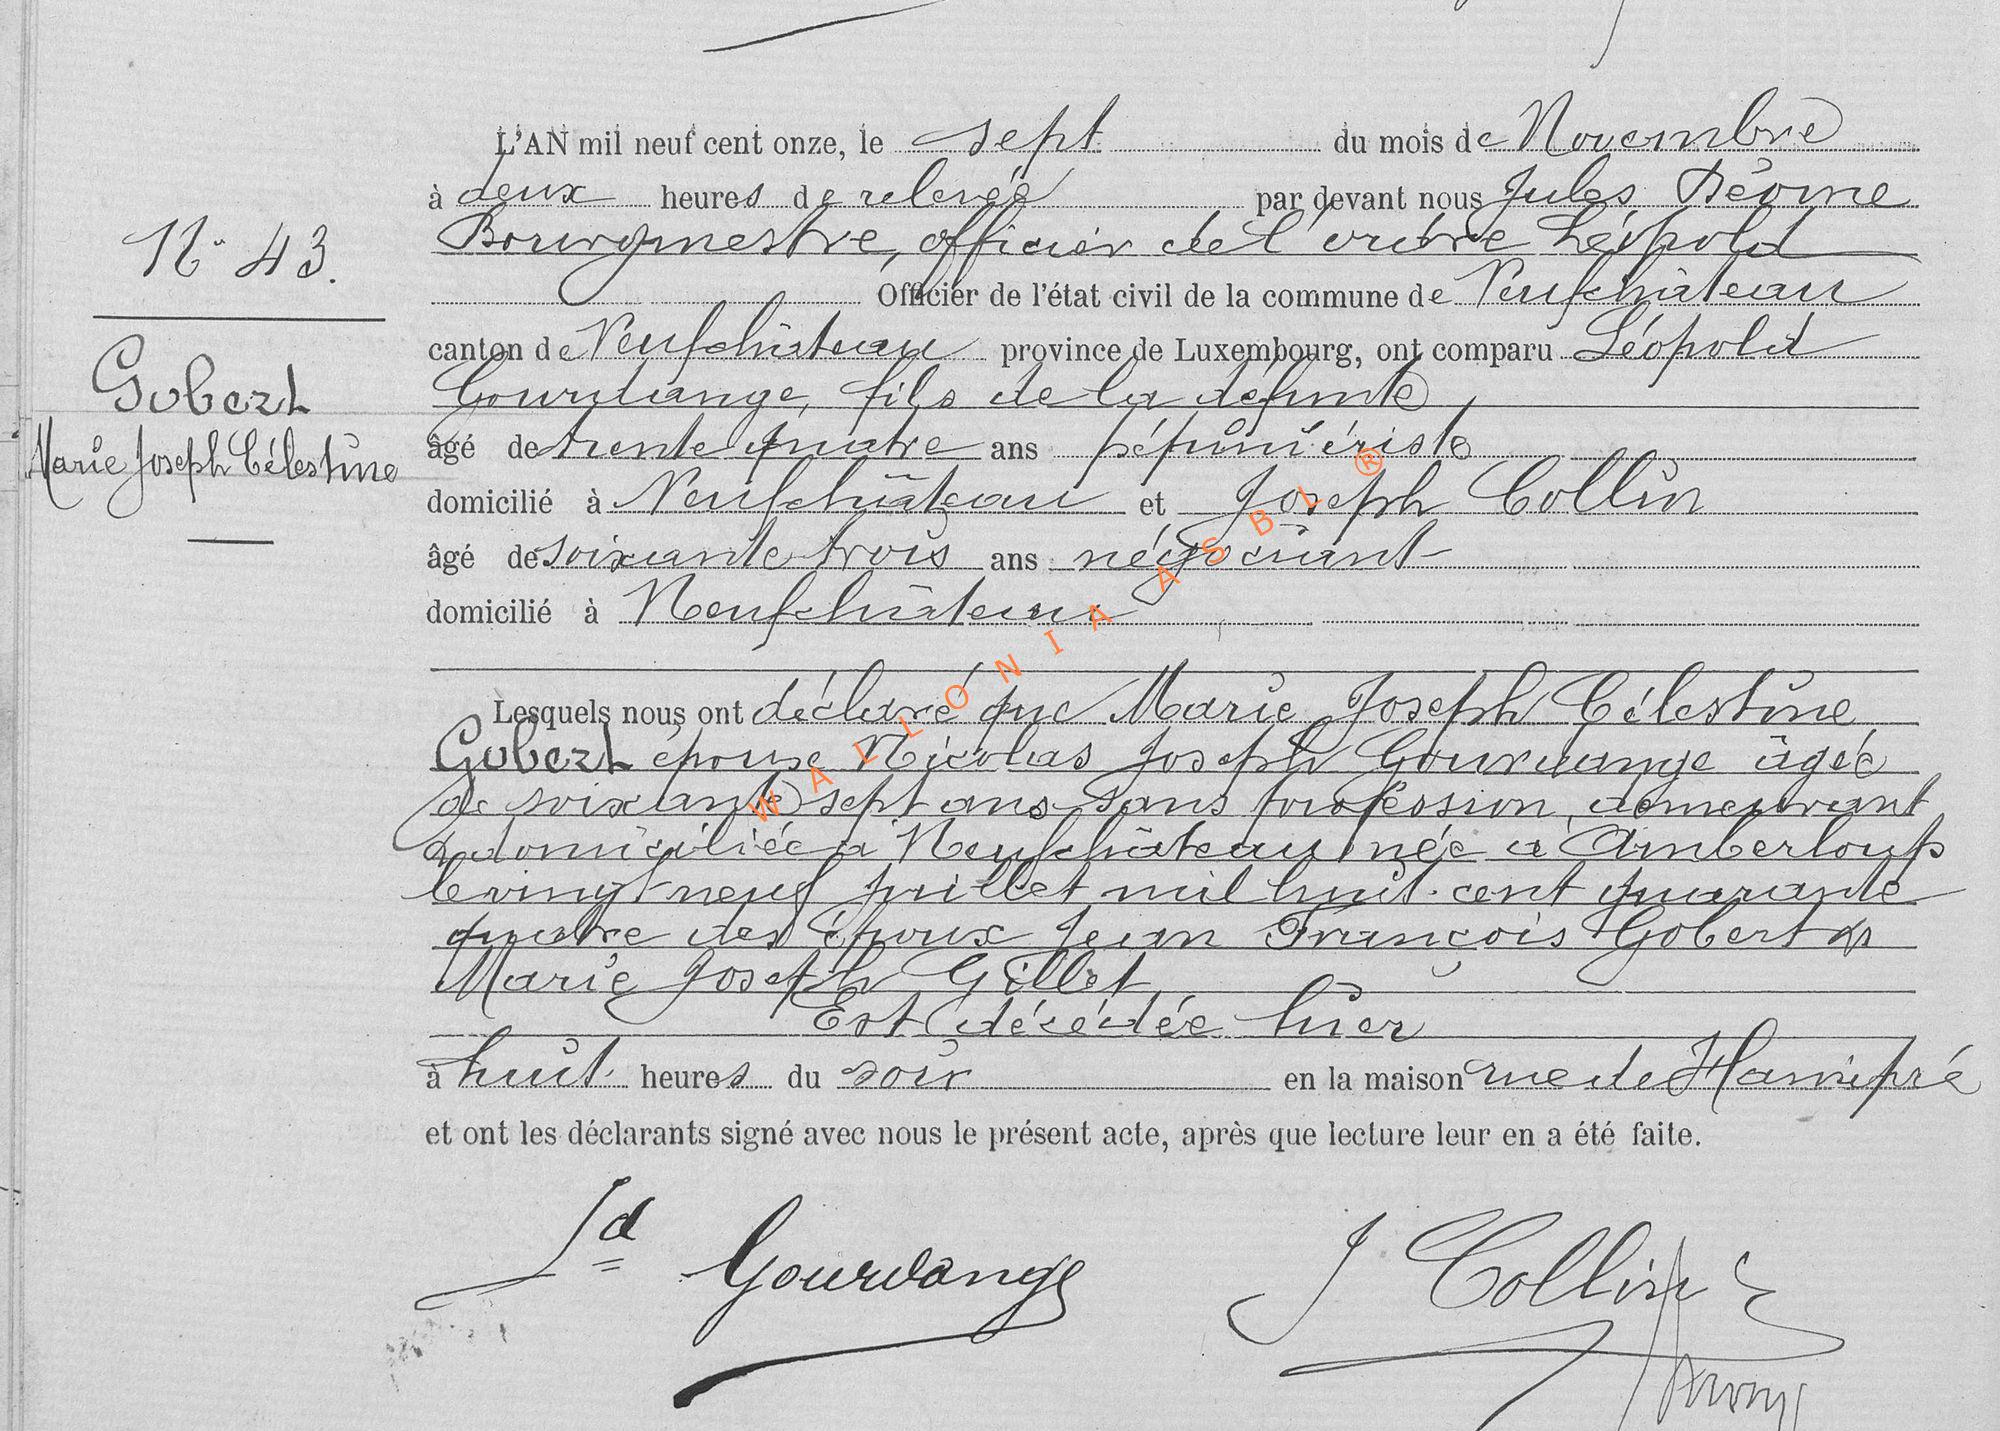 N° 43.
Gobert
Marie Joseph Célestine
L'AN mil neuf cent onze, le sept du mois de Novembre
à deux heures de relevée par devant nous Jules
Bourgmestre, officier de l'ordre Léopold
Officier de l'état civil de la commune de Neufchâteau
canton de Neufchâteau province de Luxembourg, ont comparu Léopold
Gourdange, fils de la défunte,
âgé de trente quatre ans pépiniériste
domicilié à Neufchâteau et Joseph Collin
âgé de soixante trois ans négociant
domicilié à Neufchâteau
Lesquels nous ont déclaré que Marie Joseph Célestine
Gobert épouse Nicolas Joseph Gourdange âgée
de soixante sept ans sans profession, demeurant
et domiciliée à Neufchâteau née à Amberloup
le vingt neuf juillet mil huit cent quarante
quatre des époux Jean François Gobert &
Marie Joseph Gillet
Est décédée hier
à huit heures du soir en la maison rue de Hamipré
et ont les déclarants signé avec nous le présent acte, après que lecture leur en a été faite.
Ld Gourdange J Collin
WALLONIA ASBL ®